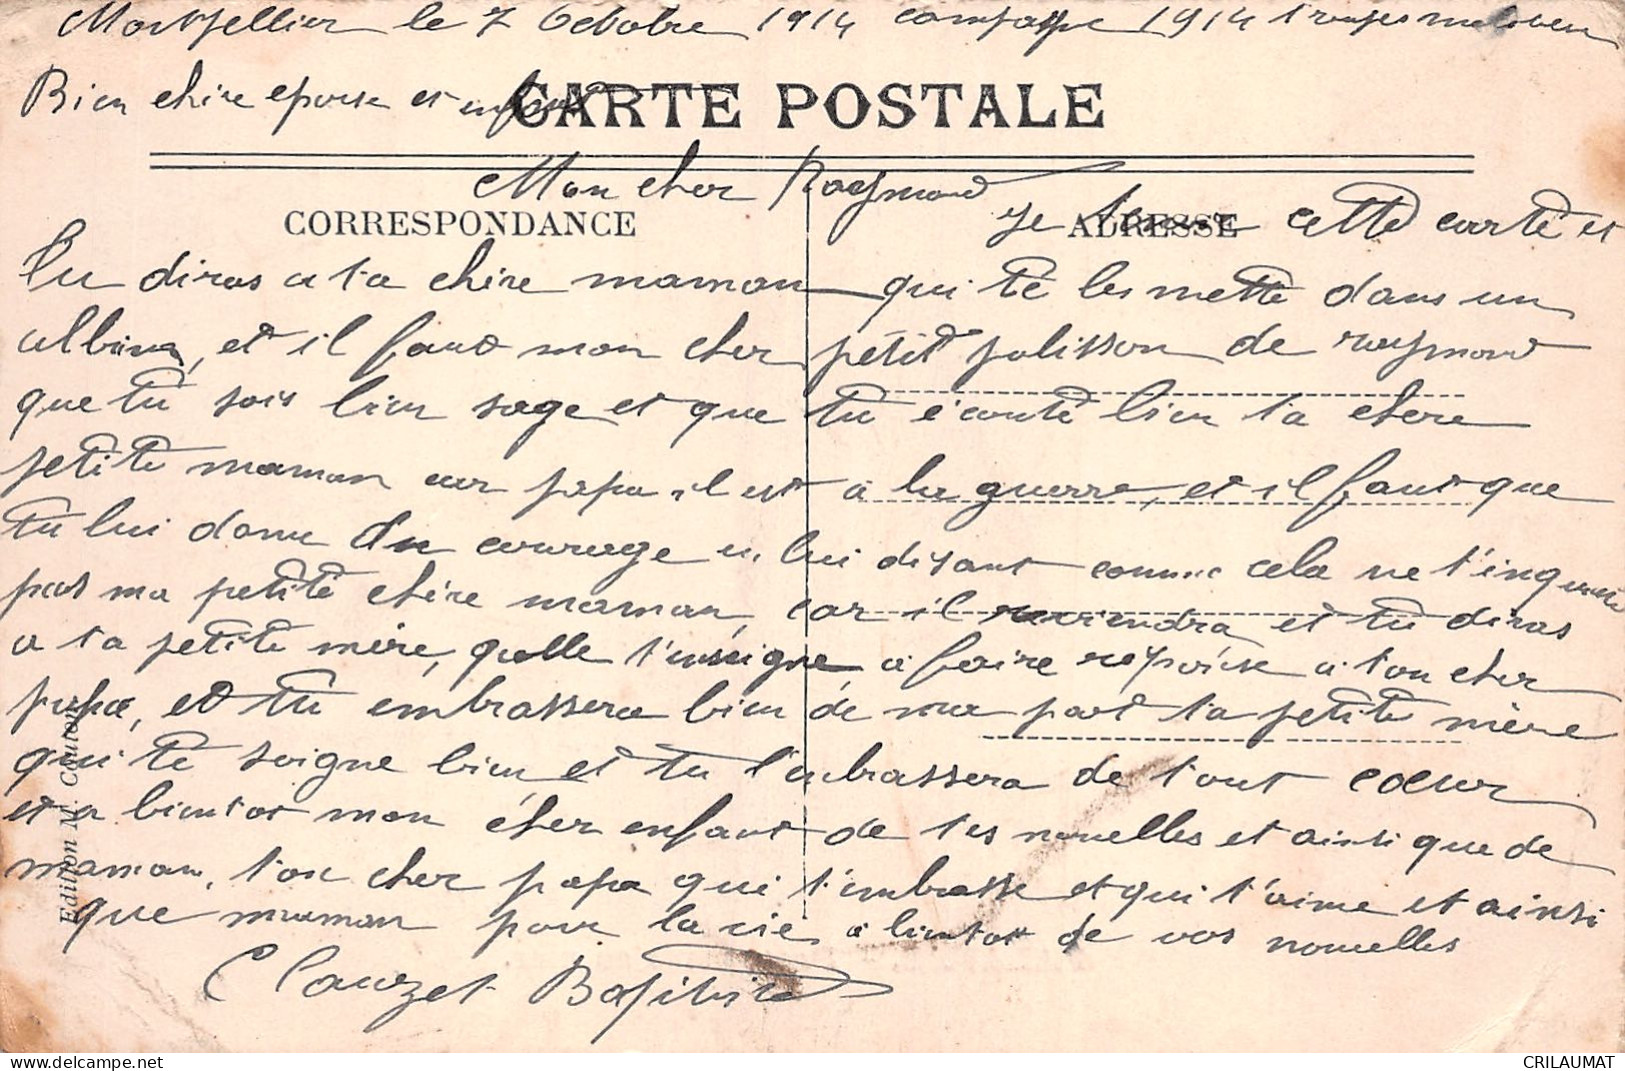 Montpellier le 7 Octobre 1914 campagne 1914 troupes
Bien chère epouse et enfant
CARTE POSTALE
Mon cher Raymond
CORRESPONDANCE
ADRESSE
Je cette carte et
Tu diras a ta chère maman qui te les mette dans un
album, et il faut mon cher petit polisson de raymond
que tu sois bien sage et que tu écoute bien ta chere
petite maman car papa il est à la guerre, et il faut que
tu lui donne du courage en lui disant comme cela ne t'inquiete
pas ma petite chère maman, car il reviendra et tu diras
a ta petite mère, quelle t'enseigne à faire reponse a ton cher
papa, et tu embrassera bien de ma part ta petite mère
qui te soigne bien et tu l'embrassera de tout coeur
et a bientot mon cher enfant de tes nouvelles et ainsi que de
maman, ton cher papa qui t'embrasse et qui t'aime et ainsi
que maman pour la vie, a bientot de vos nouvelles
Clauzet Baptiste
Edition M. Couton
delcampe.net
CRILAUMAT